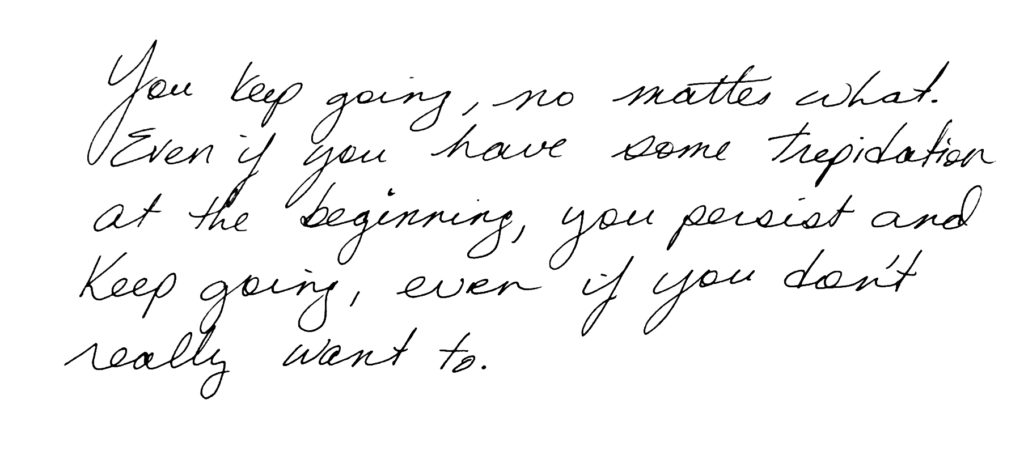 You keep going, no matter what.
Even if you have some trepidation
at the beginning, you persist and
Keep going, even if you don't
really want to.